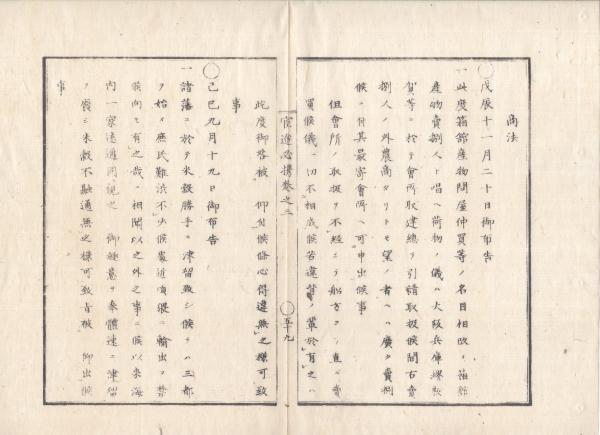 商法
○戊辰十一月二十日御布告
一此度箱館産物問屋仲買等ノ名目相改メ箱館
産物賣捌人ト唱ヘ荷物ノ儀ハ大阪兵庫堺敦
賀等ニ於テ會所取建總テ引請取扱候間右賣
捌人ノ外農商タリトモ望ノ者ヘハ廣ク賣捌
候ニ付其最寄會所ヘ可申出候事
但會所ノ取扱ヲ不經シテ船方ヨリ直ニ賣
買候儀一切不相成候若違背ノ輩於有之ハ
此度御咎被 仰付候條心得違無之樣可致
事
○己巳九月十九日御布告
一諸藩ニ於テ米穀勝手ニ津留致シ候テハ三都
ヲ始メ庶民難渋不少候處近頃猥ニ輸出ヲ禁
候向モ有之哉ニ相聞以之外之事ニ候以来海
内一家遠邇同視之 御趣意ヲ奉體速ニ津留
ヲ廢シ米穀不融通無之樣可致旨被 仰出候
事
官進必携巻之三
○五十九